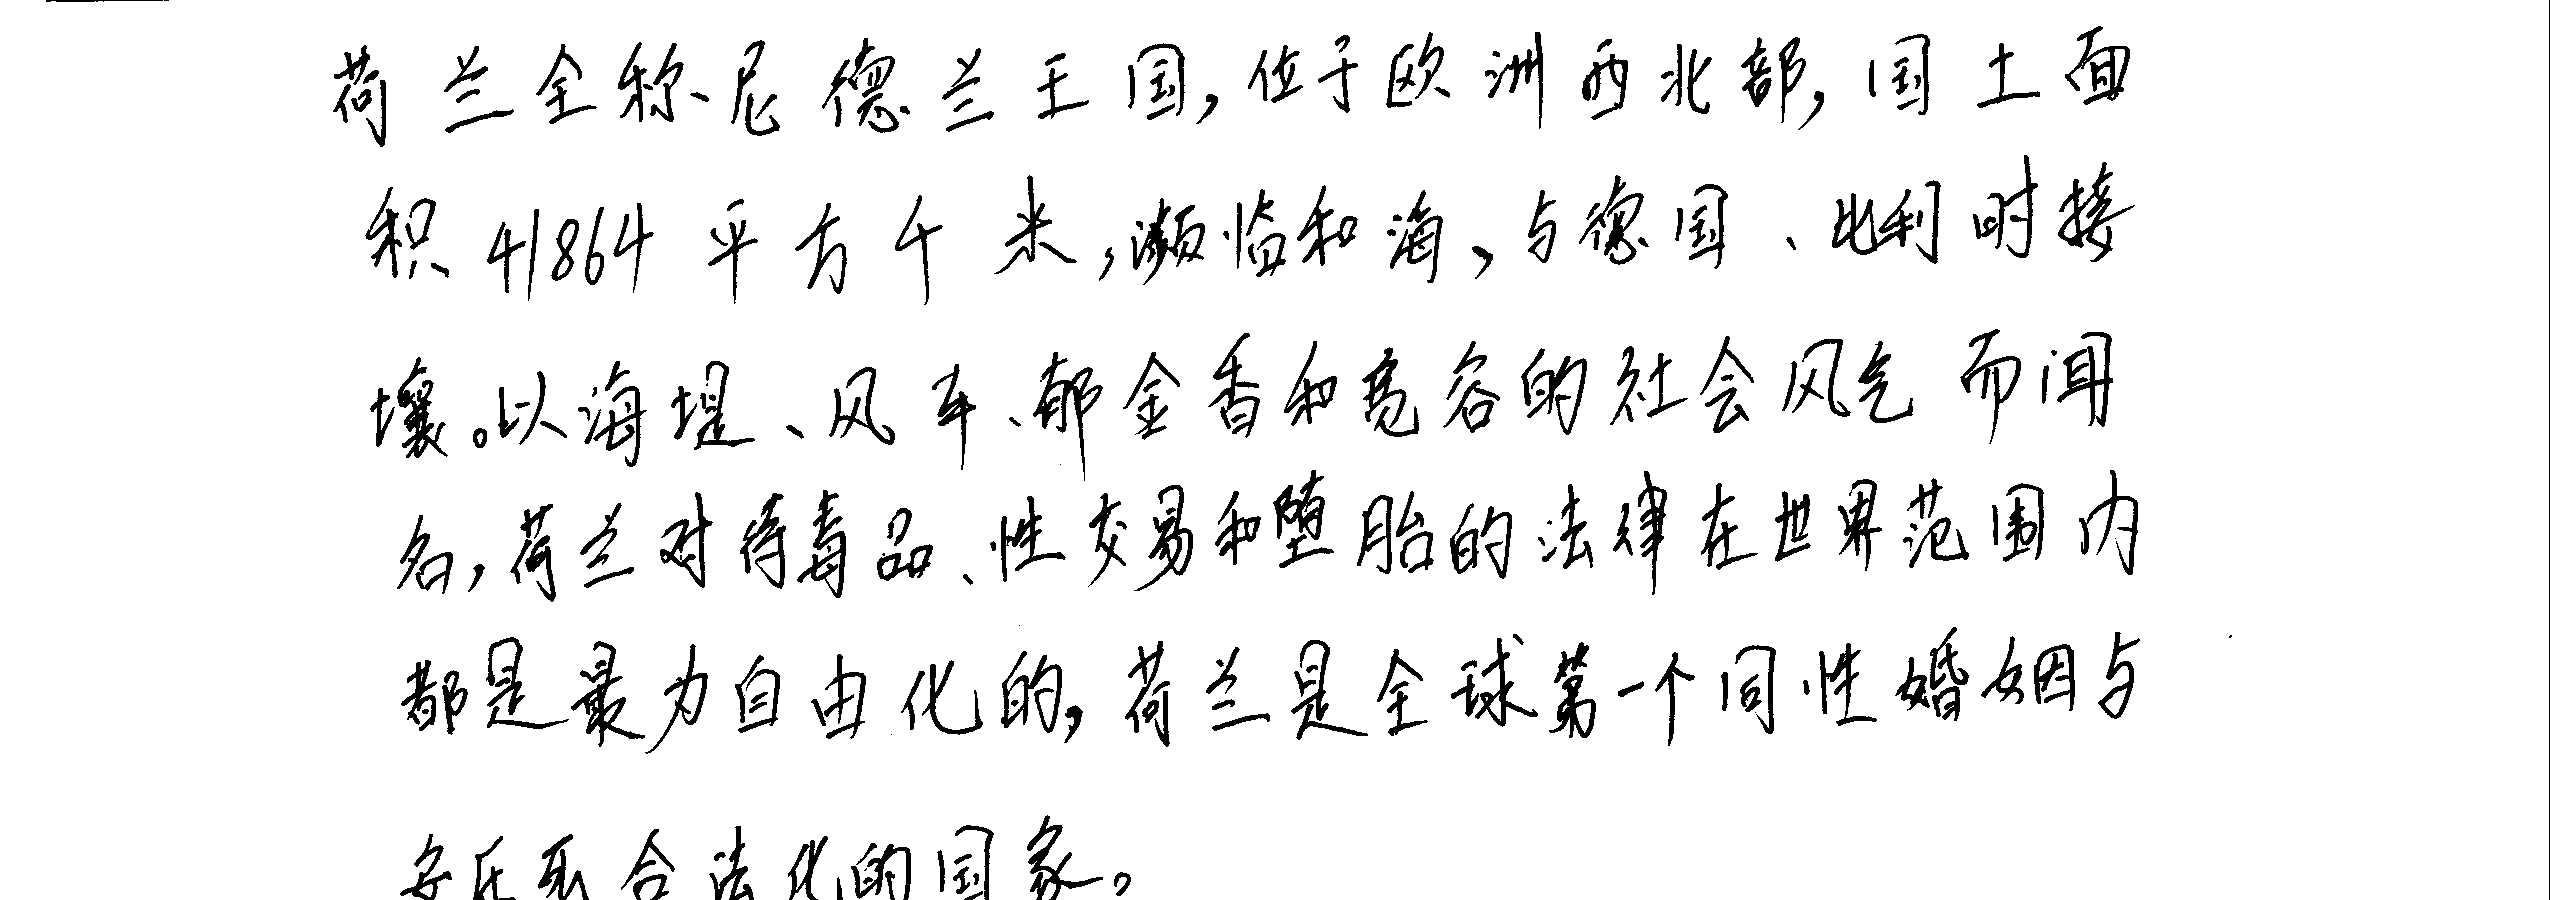 荷兰全称尼德兰王国,位于欧洲西北部,国土面
积41864平方千米,濒临和海、与德国、比利时接
壤。以海堤、风车、郁金香和宽容的社会风气而闻
名,荷兰对待毒品、性交易和堕胎的法律在世界范围内
都是最为自由化的,荷兰是全球第一个同性婚姻与
安乐死合法化的国家。